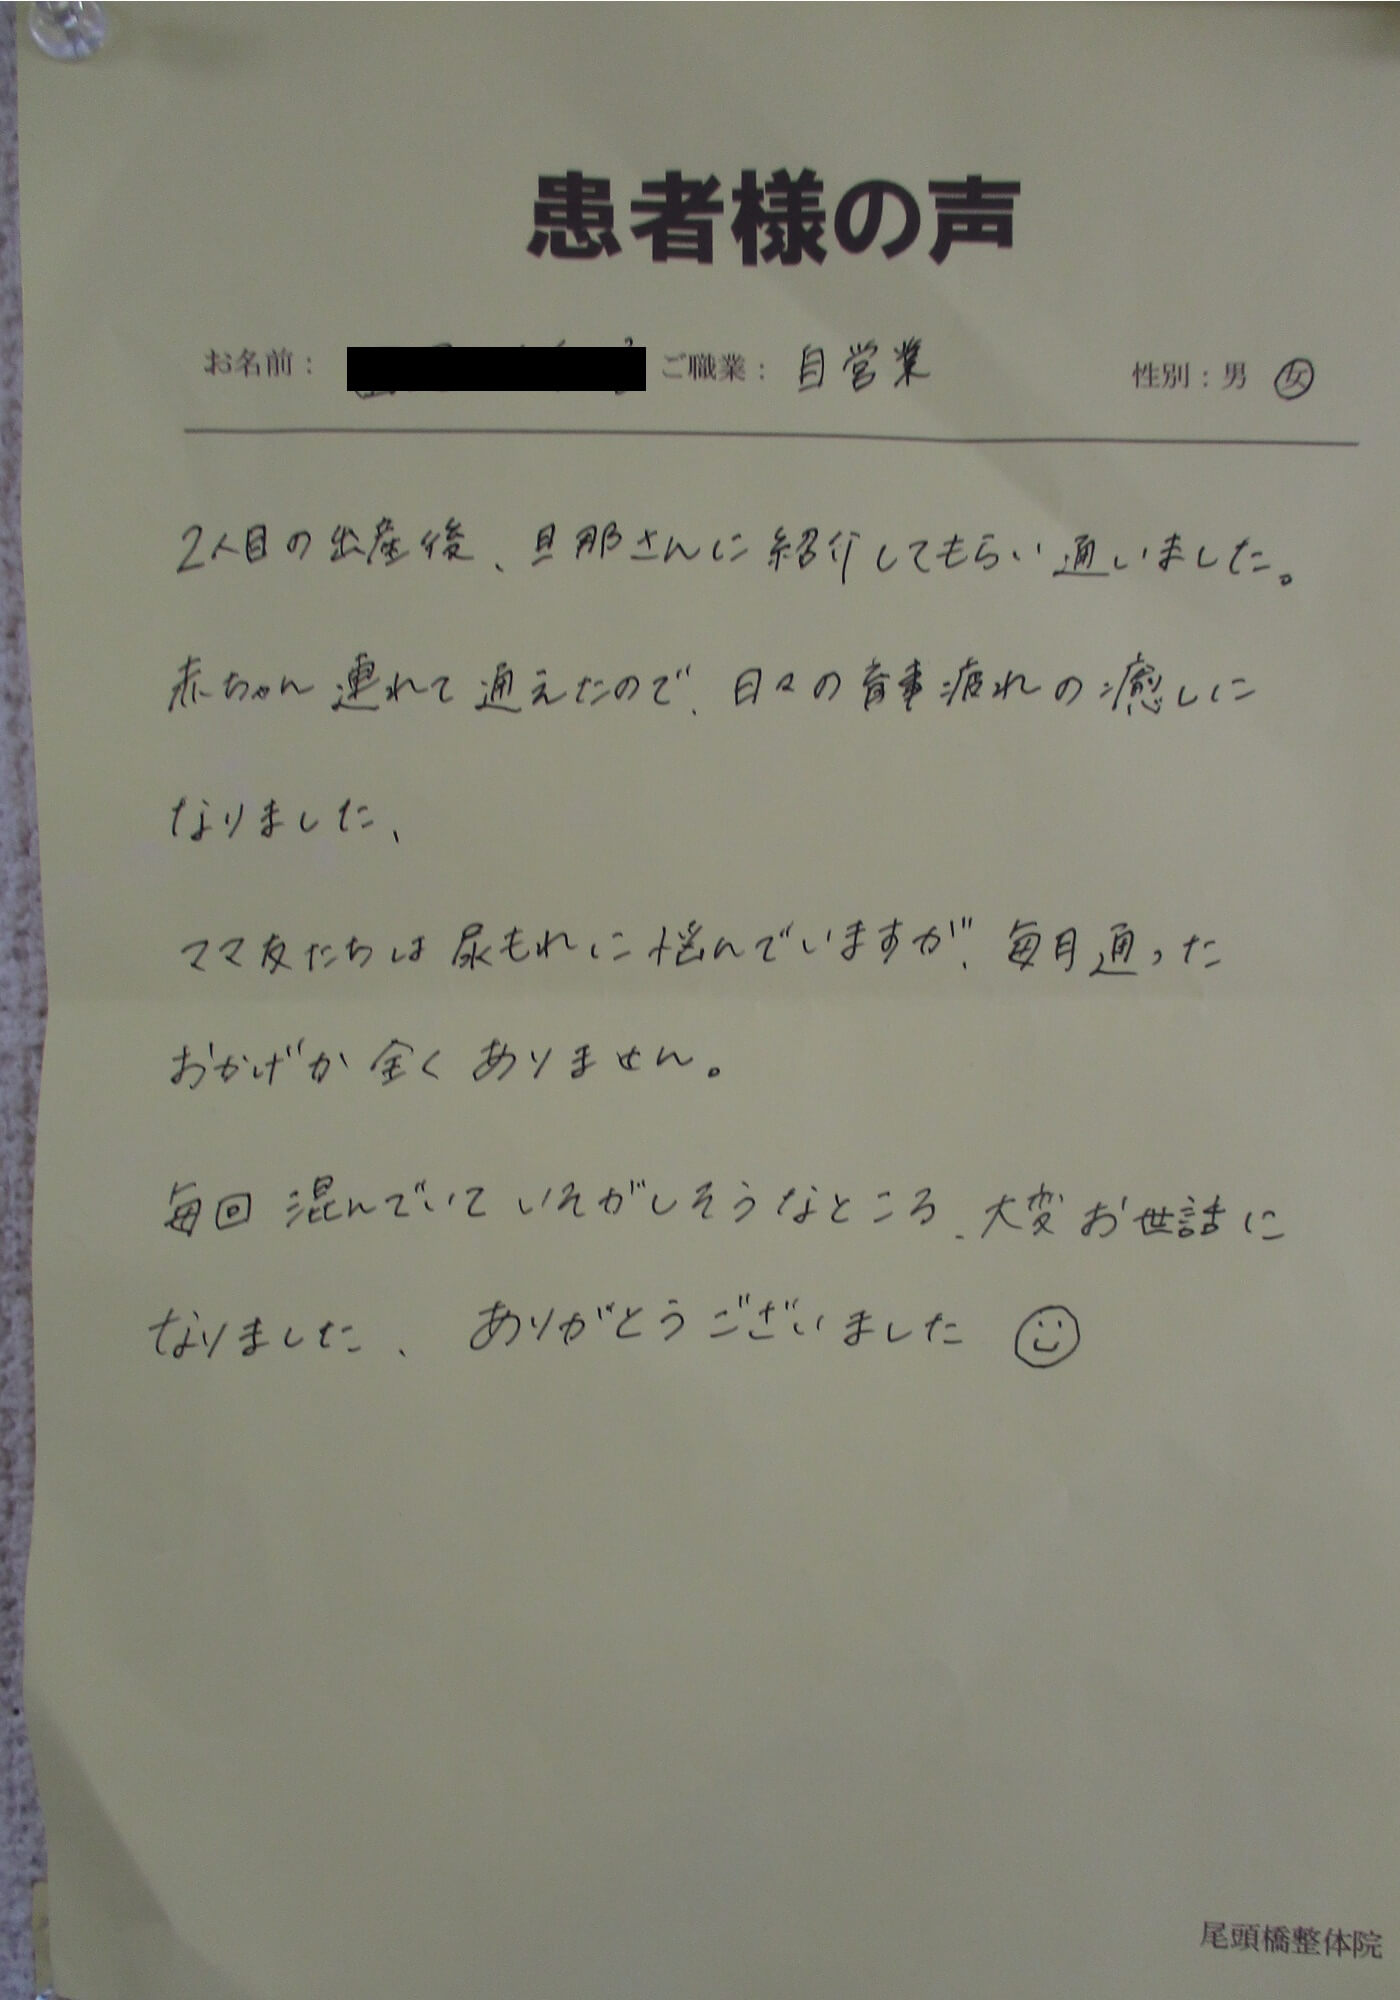 患者様の声
お名前： ご職業： 自営業 性別：男 女
2人目の出産後、旦那さんに紹介してもらい通いました。
赤ちゃん連れて通えたので、日々の育事疲れの癒しに
なりました、
ママ友たちは尿もれに悩んでいますが、毎月通った
おかげか全くありません。
毎回混んでいていそがしそうなところ、大変お世話に
なりました、ありがとうございました
尾頭橋整体院